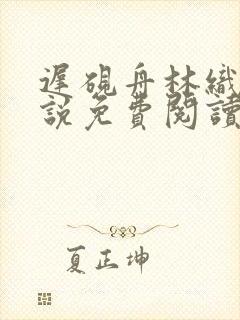 遲硯舟林織
說免費閱讀
夏正坤